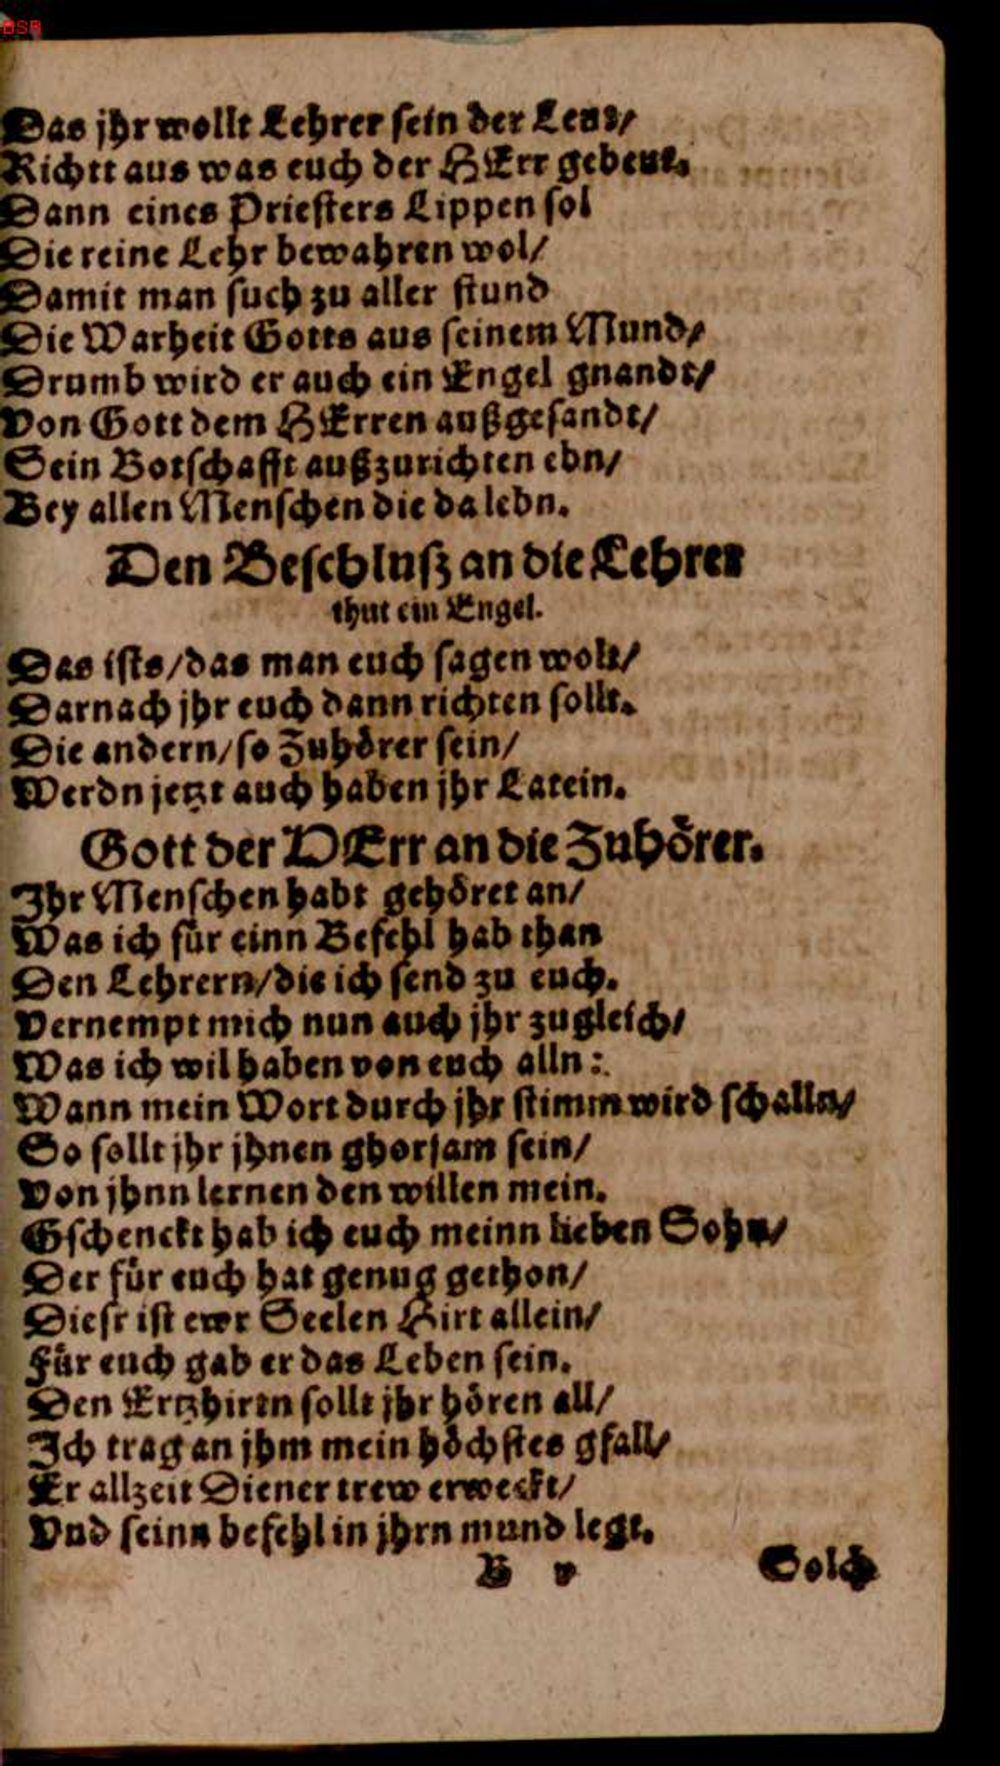 BSB
Das jhr wollt Lehrer sein der Leut/
Richtt aus was euch der HErr gebeut.
Dann eines Priesters Lippen sol
Die reine Lehr bewahren wol/
Damit man such zu aller stund
Die Warheit Gotts aus seinem Mund/
Drumb wird er auch ein Engel gnandt/
Von Gott dem HErren außgesandt/
Sein Botschafft außzurichten ebn/
Bey allen Menschen die da lebn.
Den Beschluß an die Lehrer
thut ein Engel.
Das ists/das man euch sagen wolt/
Darnach jhr euch dann richten sollt.
Die andern/so Zuhörer sein/
Werdn jetzt auch haben jhr Latein.
Gott der HErr an die Zuhörer.
Ihr Menschen habt gehöret an/
Was ich für einn Befehl hab than
Den Lehrern/die ich send zu euch.
Vernempt mich nun auch jhr zugleich/
Was ich wil haben von euch alln:
Wann mein Wort durch jhr stimm wird schalln/
So sollt jhr jhnen ghorsam sein/
Von jhnn lernen den willen mein.
Gschenckt hab ich euch meinn lieben Sohn/
Der für euch hat genug gethon/
Diesr ist ewr Seelen Hirt allein/
Für euch gab er das Leben sein.
Den Ertzhirtn sollt jhr hören all/
Ich trag an jhm mein höchstes gfall/
Er allzeit Diener trew erweckt/
Vnd seinn befehl in jhrn mund legt.
B v Solch